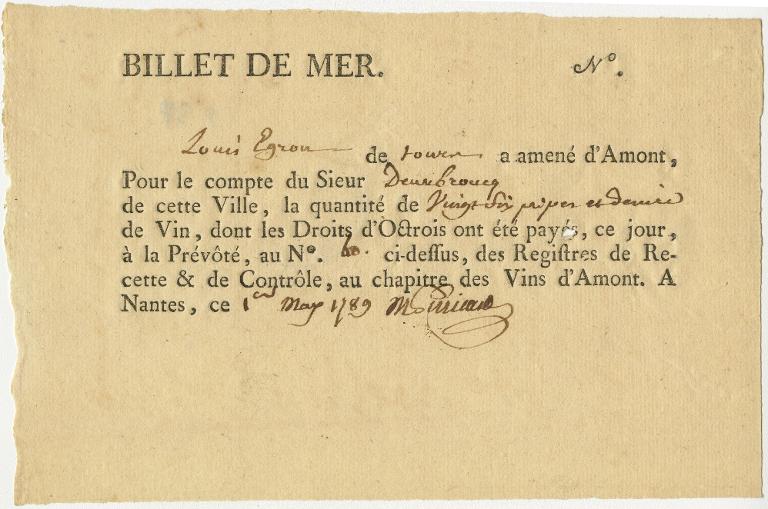 BILLET DE MER. N°.
Louis Egron de tours a amené d'Amont,
Pour le compte du Sieur Deurbroucq
de cette Ville, la quantité de Vingt six pipes et demie
de Vin, dont les Droits d'Octrois ont été payés, ce jour,
à la Prévôté, au N°. ci-dessus, des Registres de Re-
cette & de Contrôle, au chapitre des Vins d'Amont. A
Nantes, ce 1er May 1789